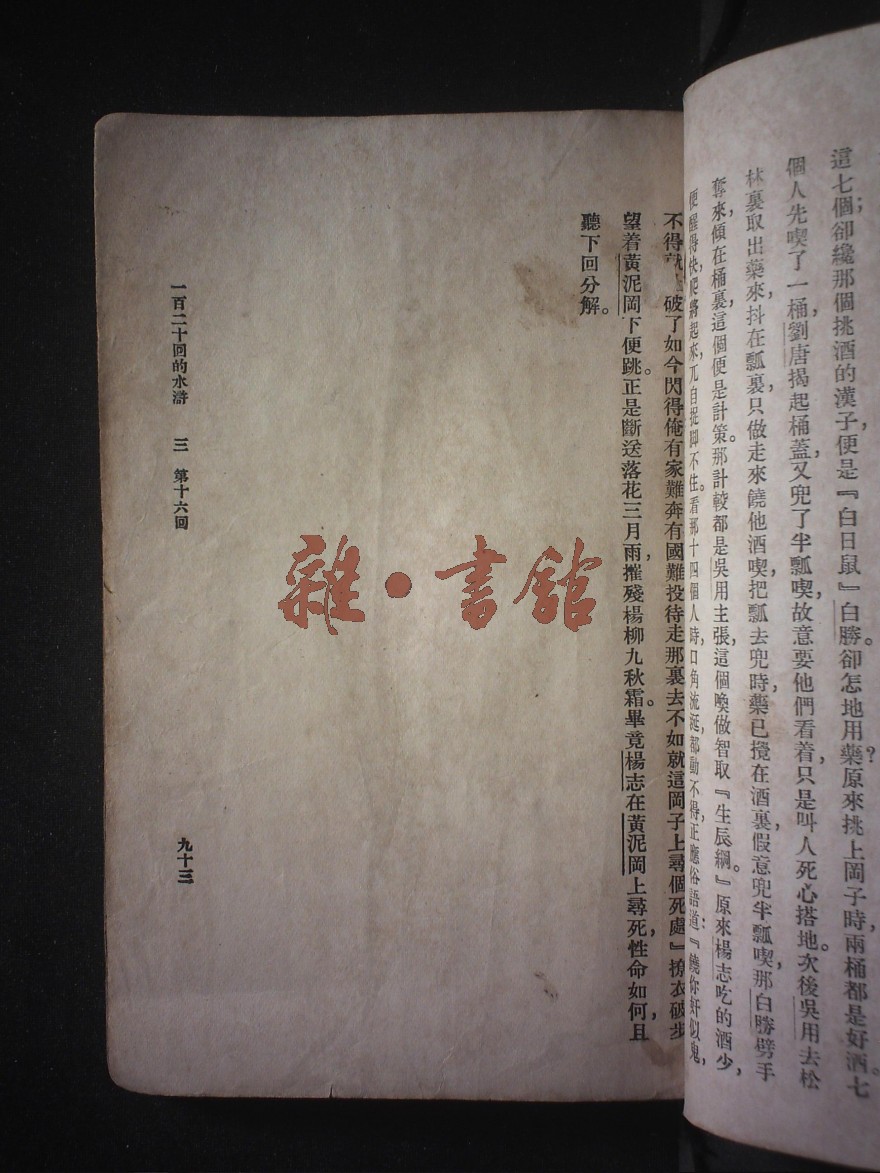 這七個卻纔那個挑酒的漢子,便是『白日鼠』白勝。卻怎地用藥?原來挑上岡子時,兩桶都是好酒。七
個人先喫了一桶,劉唐揭起桶蓋,又兜了半瓢喫,故意要他們看着,只是叫人死心搭地。次後吳用去松
林裏取出藥來,抖在瓢裏,只做走來饒他酒喫,把瓢去兜時,藥已攪在酒裏,假意兜半瓢喫,那白勝劈手
奪來,傾在桶裏,這個便是計策。那計較都是吳用主張,這個喚做智取『生辰綱。』原來楊志吃的酒少,
便醒得快,爬將起來,兀自捉脚不住。看那十四個人時,口角流涎,都動不得,正應俗語道:『饒你奸似鬼,
不得就 破了如今閃得俺有家難奔,有國難投,待走那裏去?不如就這岡子上尋個死處』撩衣破步
望着黃泥岡下便跳。正是斷送落花三月雨,摧殘楊柳九秋霜。畢竟楊志在黃泥岡上尋死,性命如何,且
聽下回分解。
一百二十回的水滸 三 第十六回
九十三
雜·書館